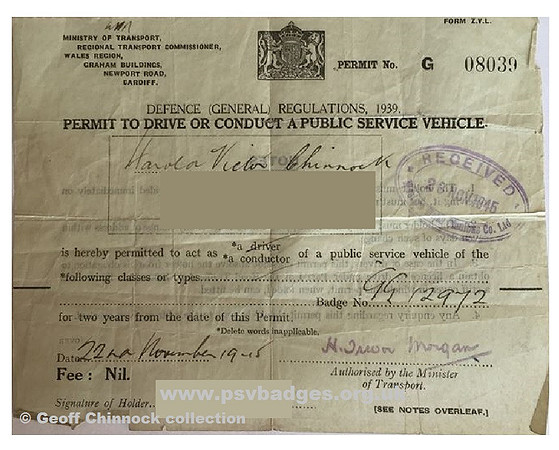 FORM Z.Y.L.
MINISTRY OF TRANSPORT,
REGIONAL TRANSPORT COMMISSIONER,
WALES REGION,
GRAHAM BUILDINGS,
NEWPORT ROAD,
CARDIFF.
PERMIT No. G 08039
DEFENCE (GENERAL) REGULATIONS, 1939.
PERMIT TO DRIVE OR CONDUCT A PUBLIC SERVICE VEHICLE.
Harold Victor Chinnock
RECEIVED
NOV 1945
Co. Ltd
is hereby permitted to act as *a driver
*a conductor of a public service vehicle of the
*following classes or types
Badge No. GG 12972
for two years from the date of this Permit.
*Delete words inapplicable.
Date 22nd November 1945
H. Trevor Morgan
Fee : Nil.
Authorised by the Minister
of Transport.
www.psvbadges.org.uk
Signature of Holder
[SEE NOTES OVERLEAF.]
© Geoff Chinnock collection